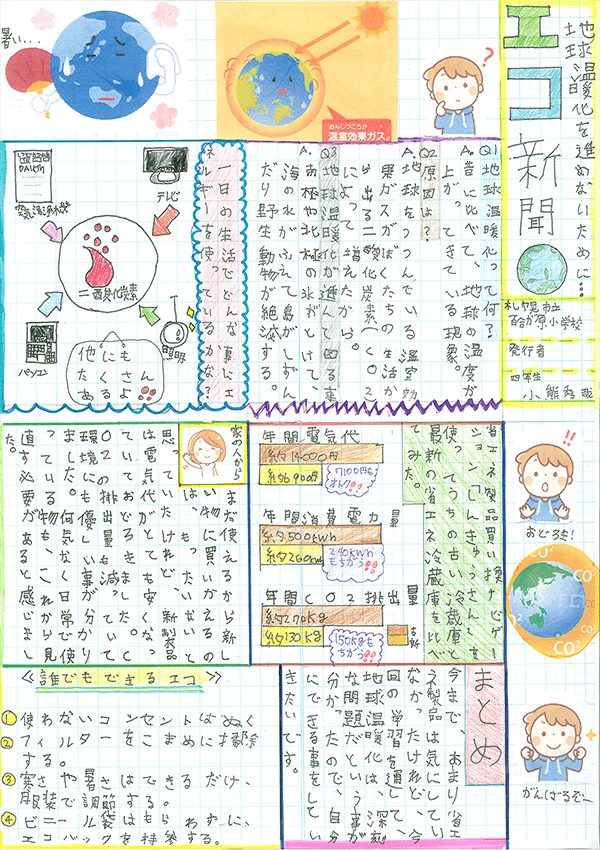 地球温暖化を進めないために…
エコ新聞
札幌市立
百合が原小学校
発行者
四年生
小熊
?
おんしつこうか
温室効果ガス。
暑い...
Q1地球温暖化って何?
A.昔に比べて、地球の温度が
上がってきている現象。
Q2原因は?
A.地球をつつんでいる温室効
果ガスがぼくたちの生活か
ら出る二酸化炭素(CO2)
によって増えたから。
Q3地球温暖化が進んで困る事
A.南極や北極の氷がとけて、
海の水がふえて島がしずん
だり野生動物が絶滅する。
一日の生活でどんな事にエ
ネルギーを使っているかな?
テレビ
二酸化炭素
パソコン
照明
他にも
たくさん
あるよ
!!
おどろき!
CO2
CO2
CO2
CO2
がんばるぞー
省エネ製品買い換ナビゲー
ション「しんきゅうさん」を
使ってうちの古い冷蔵庫と
最新の省エネ冷蔵庫を比べ
てみた。
年間電気代
約14000円
約6900円
7100円も
オトク!!
年間消費電力量
約500kwh
約260kwh
240kwh
もちがう!!
年間CO2排出量
約270kg
約130kg
150kgも
ちがう!!
古
新
家の人から
まだ使えるから新し
い物に買いかえるの
は、もったいないと
思っていたけれど、新製品
は電気代がとても安くなっ
ておどろきました。そして
CO2の排出量も減っていて
環境にも優しい事が分かり
ました。何気なく日常で使
っている物も、これから見
直す必要があると感じまし
た。
まとめ
今まで、あまり省エ
ネ製品は気にしてい
なかったけれど、今
回の学習を通して、
地球温暖化は、深刻
な問題だという事が
分かったので、自分
にできる事をしてい
きたいです。
≪誰でもできるエコ≫
①使わないコンセントはぬく
②フィルターをこまめに掃除
する。
③寒さや暑さはできるだけ、
服装で調節する。
④ビニール袋はもらわずに、
エコバックを持参する。